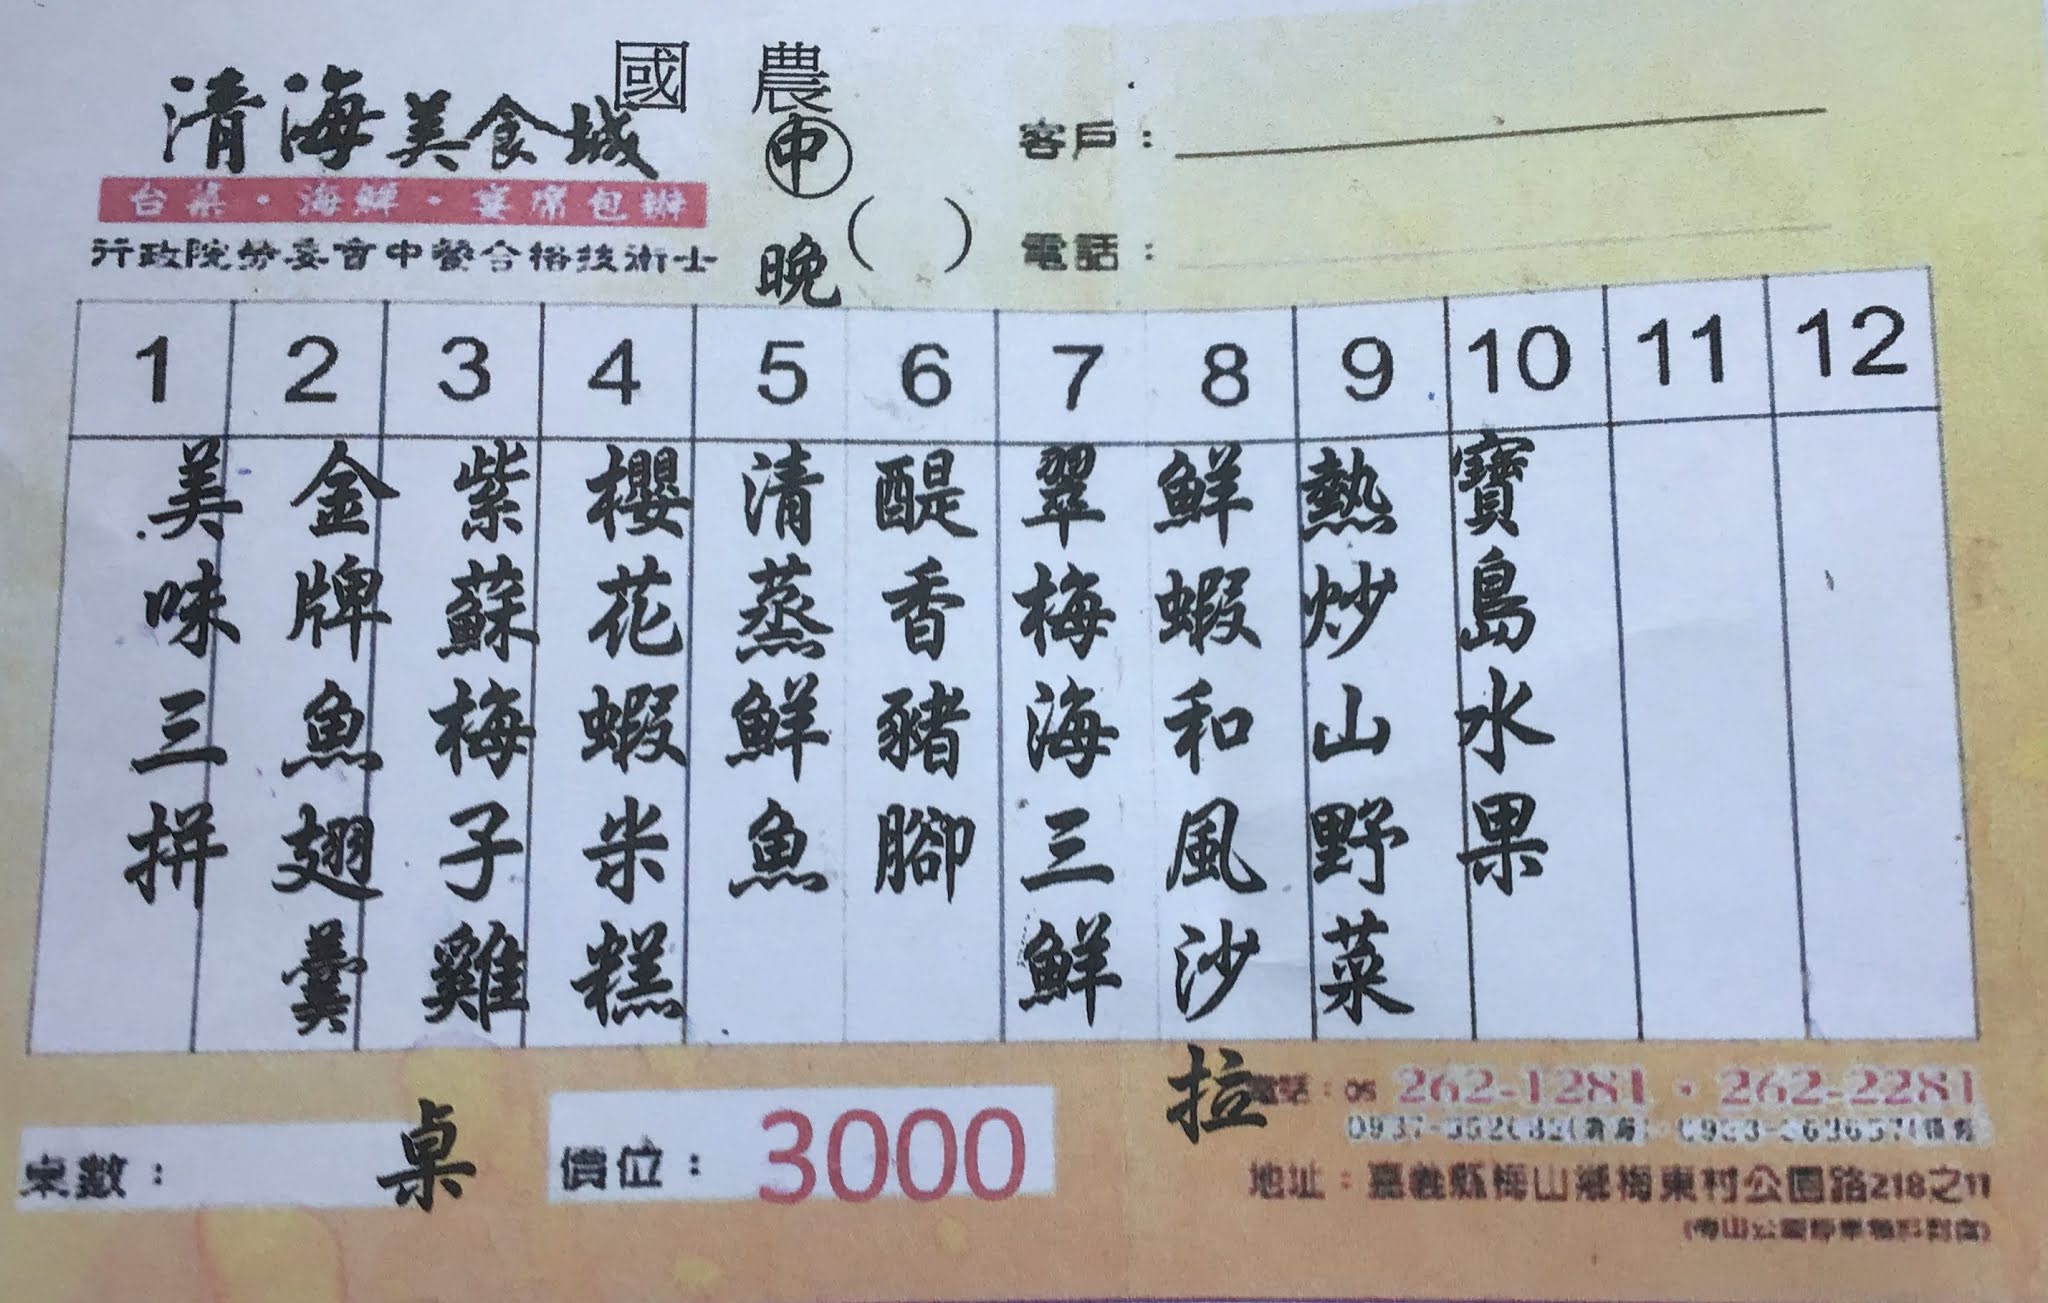 清海美食城
國 農
台菜・海鮮・宴席包辦
中
客戶：
行政院勞委會中餐合格技術士
晚 ( )
電話：
1 2 3 4 5 6 7 8 9 10 11 12
美味三拼
金牌魚翅羹
紫蘇梅子雞
櫻花蝦米糕
清蒸鮮魚
醍香豬腳
翠梅海三鮮
鮮蝦和風沙拉
熱炒山野菜
寶島水果
桌數： 桌
價位：3000
電話：05 262-1281・262-2281
地址：嘉義縣梅山鄉梅東村公園路218之11